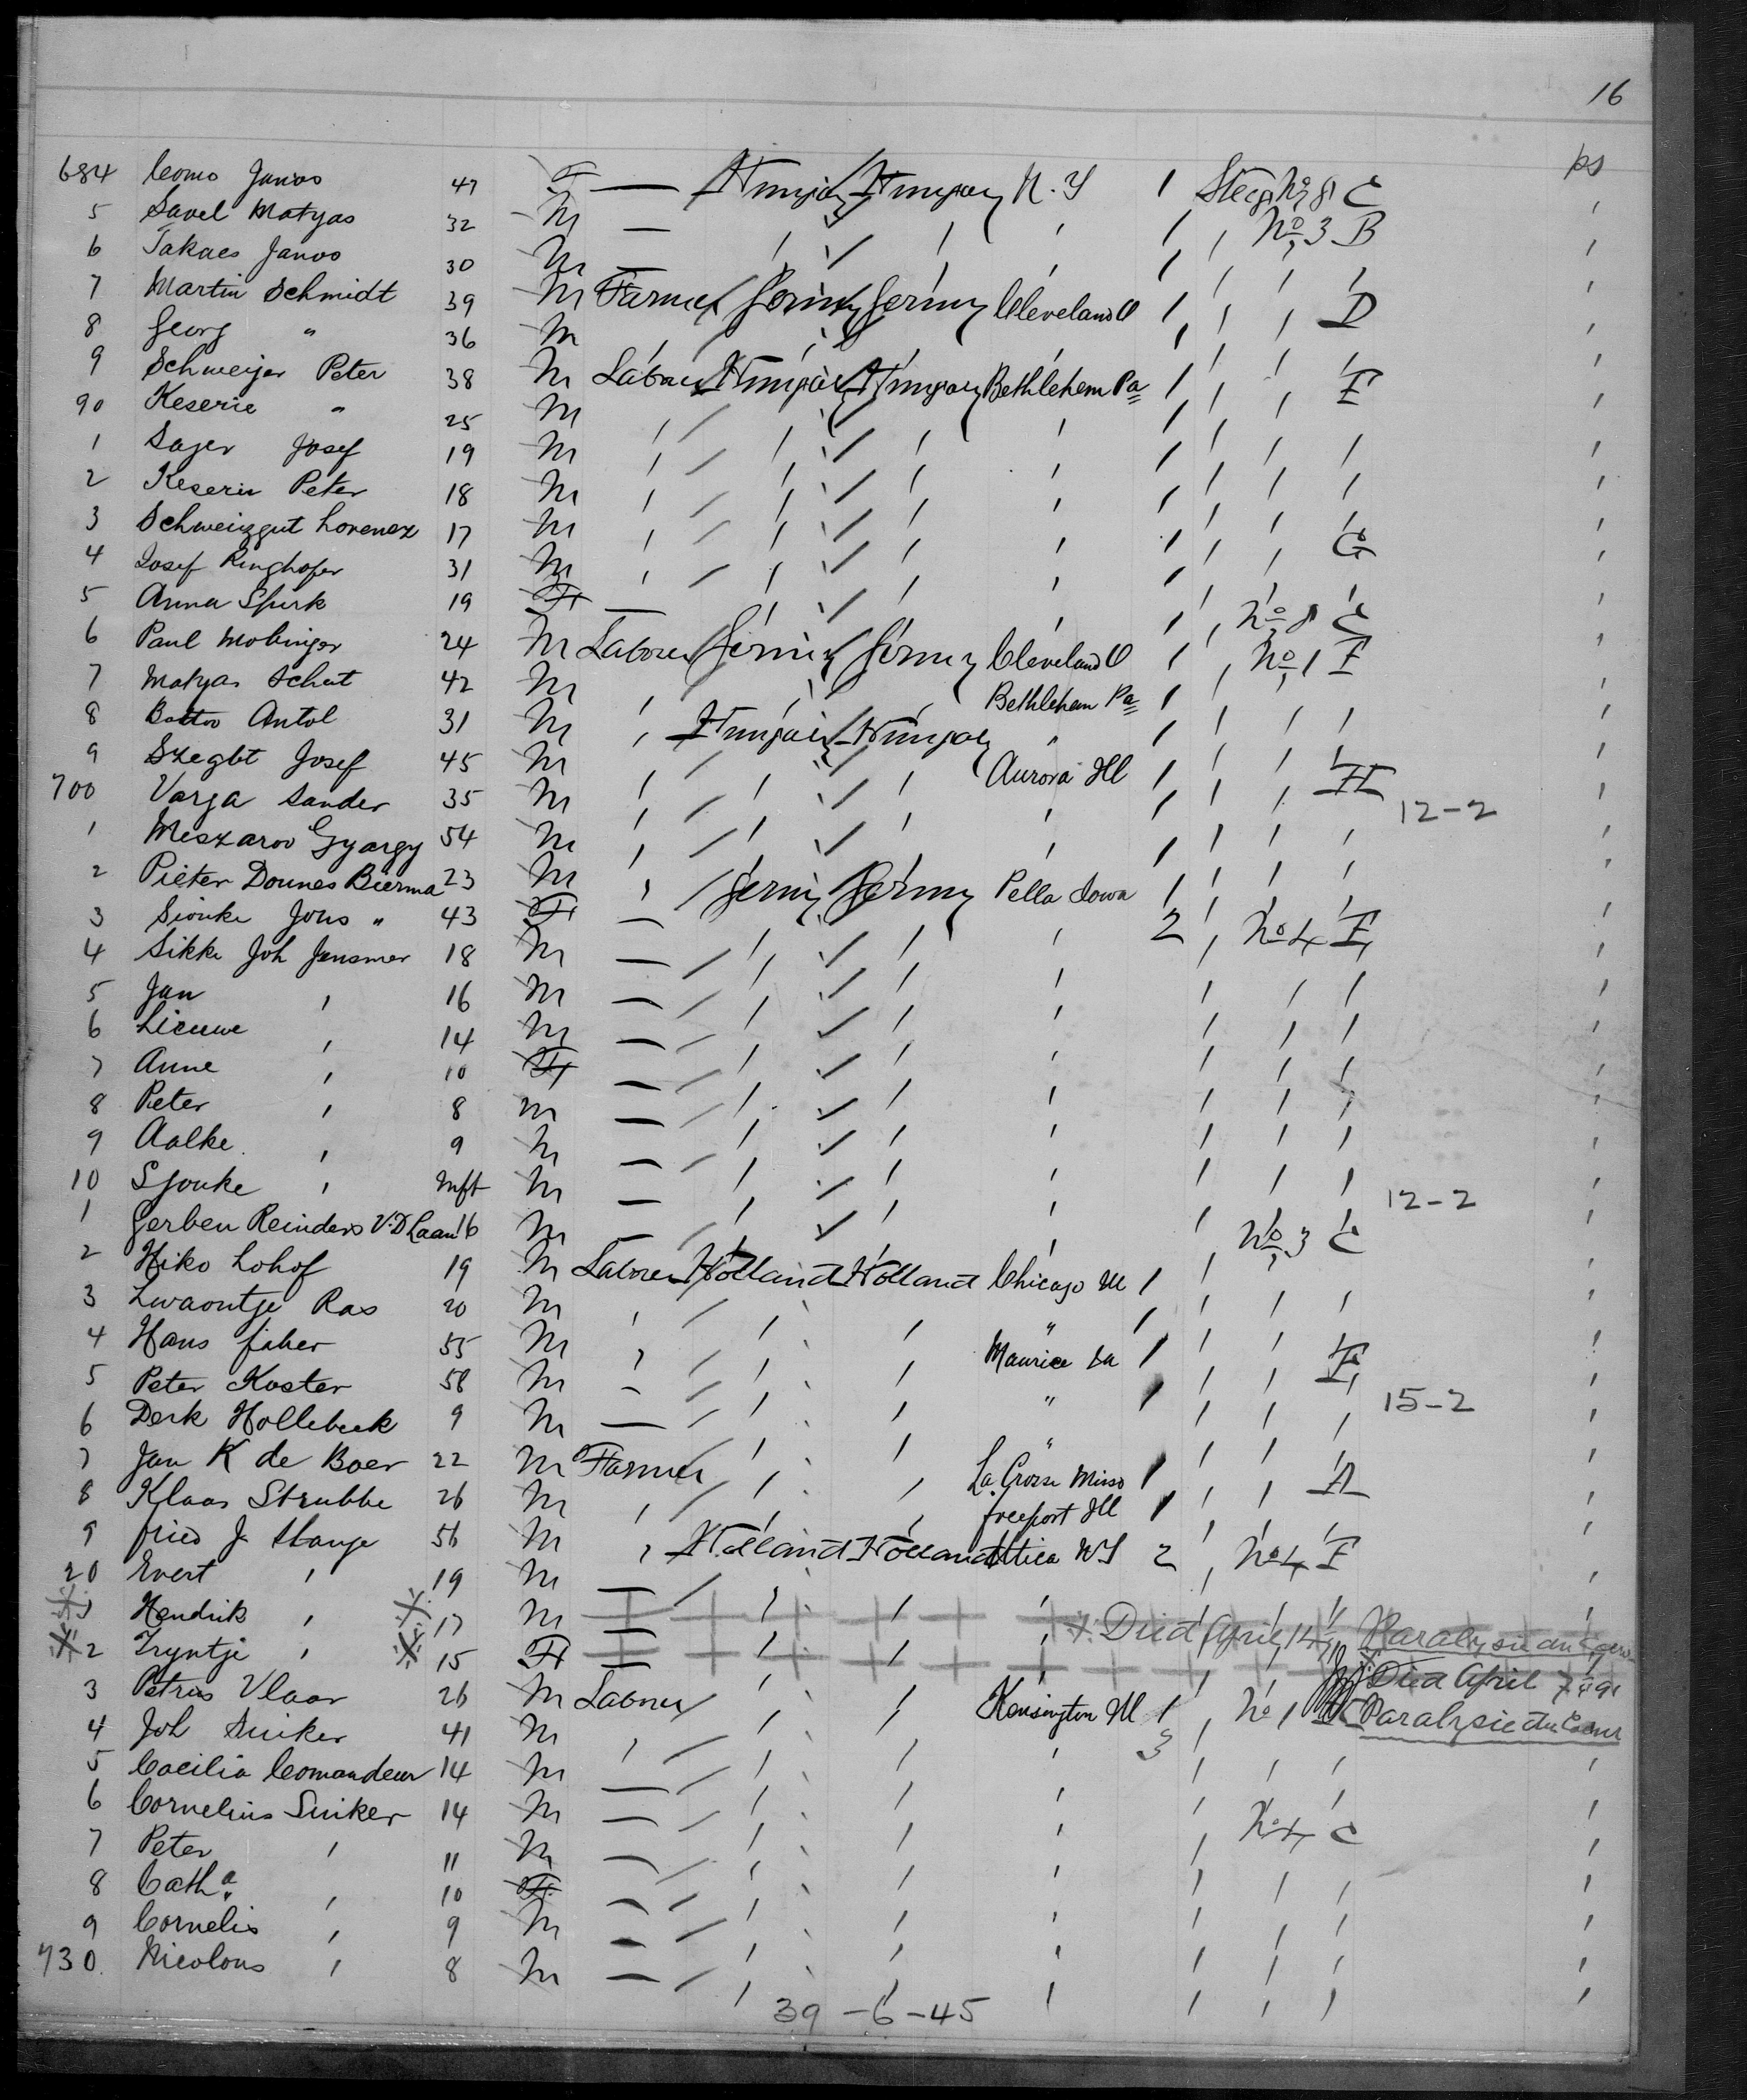 16
ps
684 Como Janos 47 F — Hungary Hungary N.Y 1 Steerg No 8 C
5 Savel Matyas 32 M — 1 No 3 B
6 Takacs Janos 30 M — 1
7 Martin Schmidt 39 M Farmer Germy Germy Cleveland O 1 D
8 Georg " 36 M 1
9 Schweijer Peter 38 M Laborer Hungary Hungary Bethlehem Pa 1 E
90 Keserie " 25 M 1
1 Sager Josef 19 M 1
2 Keserie Peter 18 M 1
3 Schweizgut Lorenez 17 M 1 G
4 Josef Ringhofer 31 M 1
5 Anna Spirk 19 F — 1 No 8 C
6 Paul Mobinger 24 M Laborer Germy Germy Cleveland O 1 No 1 F
7 Matyas Schut 42 M Bethlehem Pa 1
8 Antol 31 M Hungary Hungary " 1
9 Szegbt Josef 45 M Aurora Ill 1 H
700 Varga Sander 35 M 1 12-2
1 Meszaros Gyorgy 54 M 1
2 Pieter Dounes Bierma 23 M Germy Germy Pella Iowa 1
3 Sionke Johs " 43 F — 2 No 4 F
4 Sikke Joh Jensmer 18 M —
5 Jan 16 M —
6 Lieuwe 14 M —
7 Anne 10 F —
8 Peter 8 M —
9 Aalke 9 M —
10 Sjouke Inft M — 12-2
1 Gerben Reinders V.D Laan 16 M — No 3 C
2 Hiko Lohof 19 M Laborer Holland Holland Chicago Ill 1
3 Zwaontje Ras 20 M " 1
4 Hans faber 55 M Maurice Ia 1 F
5 Peter Koster 58 M — " 1 15-2
6 Derk Hollebeek 9 M — "
7 Jan K de Boer 22 M Farmer La Crosse Minso 1 A
8 Klaas Strubbe 26 M freeport Ill 1
9 fried J Stange 56 M Holland Holland Utica NY 2 No 4 F
20 Evert 19 M —
1 Hendrik 17 M — Died April 14 Paralysie du Coeur
2 Tryntje 15 F — Died April 7" 91
3 Petrus Vlaar 26 M Laborer Kensington Ill 1 No 1 Paralysie du Coeur
4 Joh Suiker 41 M 3
5 Cacilia Comandeur 14 M —
6 Cornelius Suiker 14 M — No 4 C
7 Peter 11 M —
8 Catha 10 F —
9 Cornelis 9 M —
730 Nicolous 8 M —
39-6-45